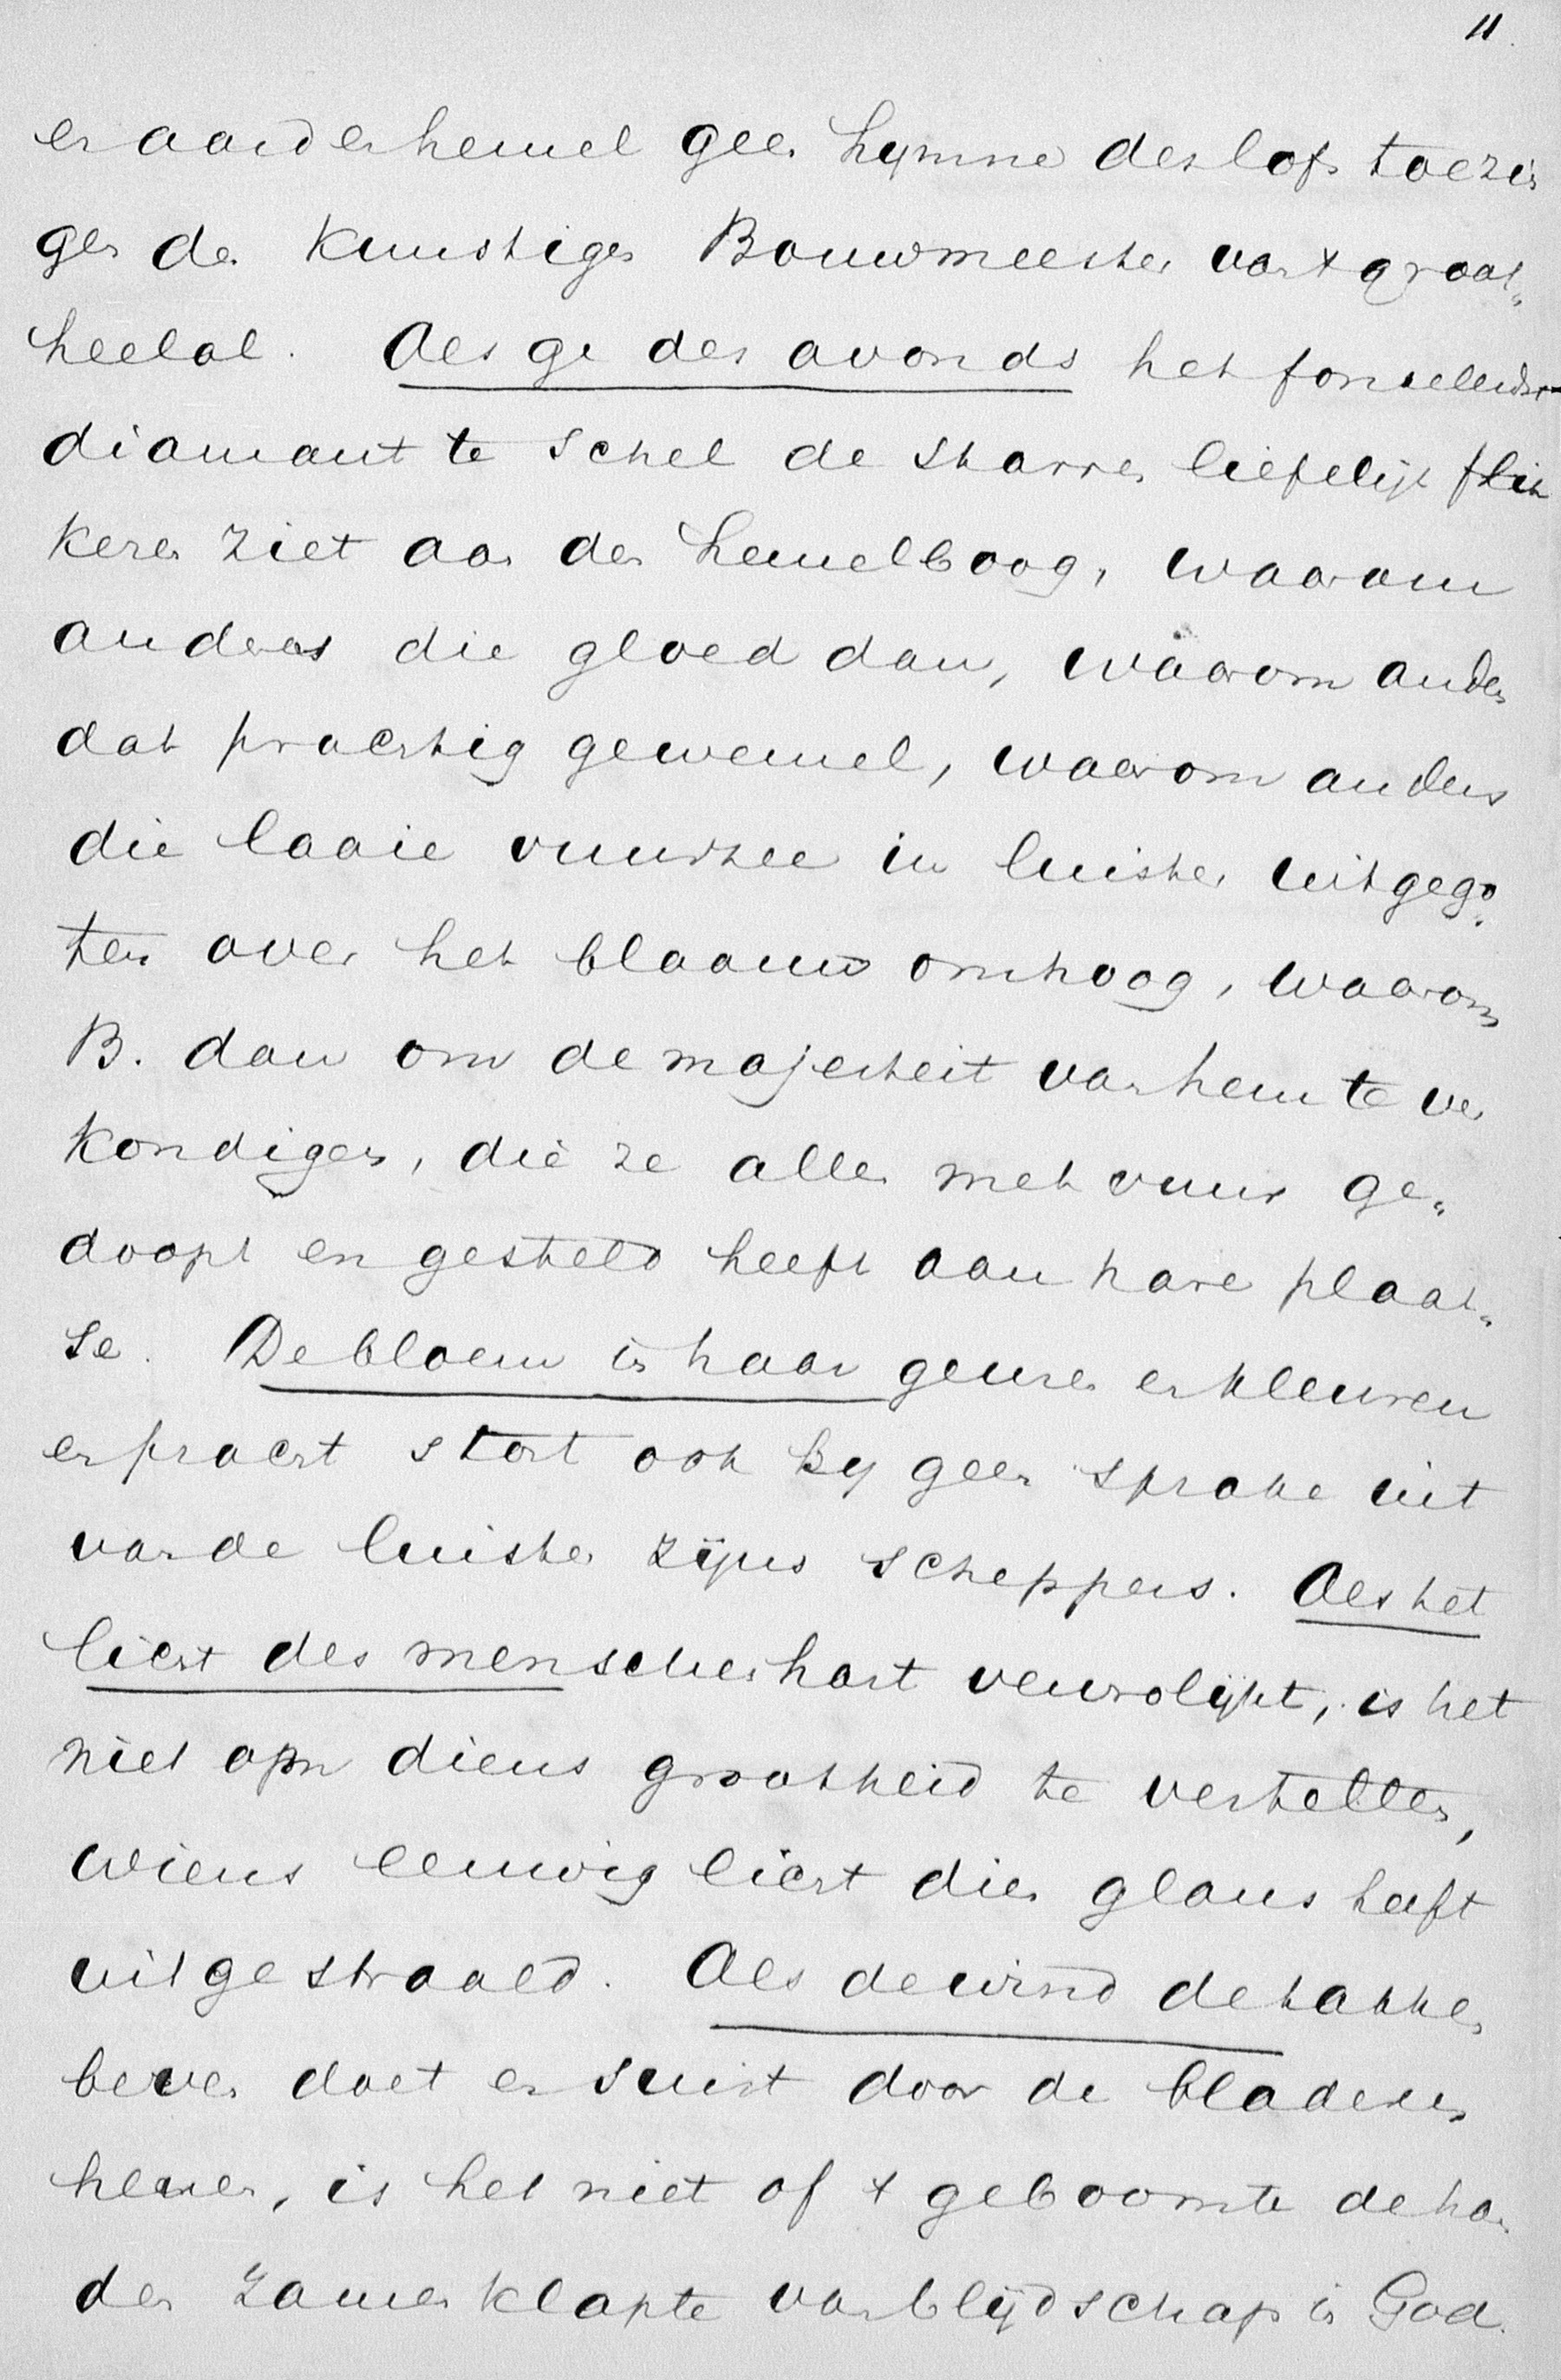 11.
en aard en hemel geen hymne des lofs toezin
gen den kunstigen Bouwmeester van 't groot„
heelal. Als ge des avonds het fonkelend
diamant te schel de starren liefelijk flik
keren ziet aan den hemelboog, waarom
anders die gloed dan, waarom anders
dat prachtig gewemel, waarom anders
die laaie vuurzee in luister uitgego„
ten over het blaauw omhoog, waarom
B. dan om de majesteit van hem te ver
kondigen, die ze allen met vuur ge„
doopt en gesteld heeft aan hare plaat„
se. De bloem in haar geuren en kleuren
en pracht stort ook zy geen sprake uit
van de luister zijns scheppers. Als het
licht des menschenhart vervrolijkt, is het
niet om diens grootheid te vertellen,
wiens eeuwig licht dien glans heeft
uitgestraald. Als de wind de takken
beven doet en suist door de bladeren
henen, is het niet of 't geboomte de han
den zamenklapte van blijdschap in God.